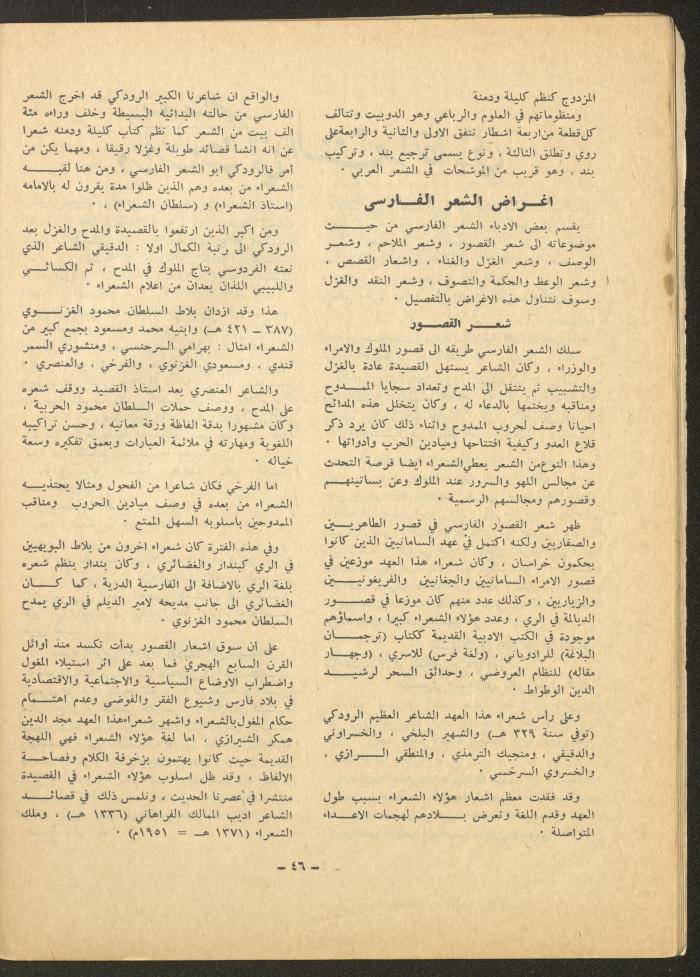 المزدوج كنظم كليلة ودمنة
ومنظوماتهم في العلوم والرباعي وهو الدوبيت وتتالف
كل قطعة من اربعة اشطار تتفق الاولى والثانية والرابعة على
روي وتطلق الثالثة ، ونوع يسمى ترجيع بند ، وتركيب
بند ، وهو قريب من الموشحات في الشعر العربي ٠
اغراض الشعر الفارسي
يقسم بعض الادباء الشعر الفارسي من حيث
موضوعاته الى شعر القصور ، وشعر الملاحم ، وشعر
الوصف ، وشعر الغزل والغناء ، واشعار القصص ،
وشعر الوعظ والحكمة والتصوف ، وشعر النقد والغزل
وسوف نتناول هذه الاغراض بالتفصيل ٠
شعر القصور
سلك الشعر الفارسي طريقه الى قصور الملوك والامراء
والوزراء ، وكان الشاعر يستهل القصيدة عادة بالغزل
والتشبيب ثم ينتقل الى المدح وتعداد سجايا الممدوح
ومناقبه ويختمها بالدعاء له ، وكان يتخلل هذه المدائح
احيانا وصف لحروب الممدوح واثناء ذلك كان يرد ذكر
قلاع العدو وكيفية افتتاحها وميادين الحرب وادواتها ٠
وهذا النوع من الشعر يعطي الشعراء ايضا فرصة التحدث
عن مجالس اللهو والسرور عند الملوك وعن بساتينهم
وقصورهم ومجالسهم الرسمية ٠
ظهر شعر القصور الفارسي في قصور الطاهريين
والصفاريين ولكنه اكتمل في عهد السامانيين الذين كانوا
يحكمون خراسان ، وكان شعراء هذا العهد موزعين في
قصور الامراء السامانيين والجغانيين والفريغونيين
والزياريين ، وكذلك عدد منهم كان موزعا في قصور
الديالمة في الري ، وعدد هؤلاء الشعراء كبيرا ، واسماؤهم
موجودة في الكتب الادبية القديمة ككتاب (ترجمان
البلاغة) للرادوياني ، (ولغة فرس) للاسري ، (وجهار
مقاله) للنظام العروضي ، وحدائق السحر لرشيد
الدين الوطواط ٠
وعلى رأس شعراء هذا العهد الشاعر العظيم الرودكي
(توفي سنة ٣٢٩ هـ) والشهير البلخي ، والخسرواني
والدقيقي ، ومنجيك الترمذي ، والمنطقي الرازي ،
والخسروي السرخسي ٠
وقد فقدت معظم اشعار هؤلاء الشعراء بسبب طول
العهد وقدم اللغة وتعرض بلادهم لهجمات الاعداء
المتواصلة ٠
والواقع ان شاعرنا الكبير الرودكي قد اخرج الشعر
الفارسي من حالته البدائية البسيطة وخلف وراءه مئة
الف بيت من الشعر كما نظم كتاب كليلة ودمنه شعرا
عن انه انشأ قصائد طويلة وغزلا رقيقا ، ومهما يكن من
أمر فالرودكي ابو الشعر الفارسي ، ومن هنا لقبه
الشعراء من بعده وهم الذين ظلوا مدة يقرون له بالامامه
(استاذ الشعراء) و (سلطان الشعراء) ٠
ومن اكبر الذين ارتفعوا بالقصيدة والمدح والغزل بعد
الرودكي الى رتبة الكمال اولا : الدقيقي الشاعر الذي
نعته الفردوسي بتاج الملوك في المدح ، ثم الكسائي
واللبيبي اللذان يعدان من اعلام الشعراء ٠
هذا وقد ازدان بلاط السلطان محمود الغزنوي
(٣٨٧ ـ ٤٢١ هـ) وابنيه محمد ومسعود بجمع كبير من
الشعراء امثال : بهرامي السرحنسي ، ومنشوري السمر
قندي ، ومسعودي الغزنوي ، والفرخي ، والعنصري ٠
والشاعر العنصري يعد استاذ القصيد ووقف شعره
على المدح ، ووصف حملات السلطان محمود الحربية ،
وكان مشهورا بدقة الفاظة ورقة معانيه ، وحسن تراكيبه
اللغوية ومهارته في ملائمة العبارات وبعمق تفكيره وسعة
خياله ٠
اما الفرخي فكان شاعرا من الفحول ومثالا يحتذيه
الشعراء من بعده في وصف ميادين الحروب ومناقب
الممدوحين باسلوبه السهل الممتع ٠
وفي هذه الفترة كان شعراء اخرون من بلاط البويهيين
في الري كبندار والغضائري ، وكان بندار ينظم شعره
بلغة الري بالاضافة الى الفارسية الدرية ، كما كان
الغضائري الى جانب مديحه لامير الديلم في الري يمدح
السلطان محمود الغزنوي ٠
على ان سوق اشعار القصور بدأت تكسد منذ أوائل
القرن السابع الهجري فما بعد على اثر استيلاء المغول
واضطراب الاوضاع السياسية والاجتماعية والاقتصادية
في بلاد فارس وشيوع الفقر والفوضى وعدم اهتمام
حكام المغول بالشعراء واشهر شعراء هذا العهد مجد الدين
همكر الشيرازي ، اما لغة هؤلاء الشعراء فهي اللهجة
القديمة حيث كانوا يهتمون بزخرفة الكلام وفصاحة
الالفاظ ، وقد ظل اسلوب هؤلاء الشعراء في القصيدة
منتشرا في عصرنا الحديث ، ونلمس ذلك في قصائد
الشاعر اديب الممالك الفراهاني (١٣٣٦ هـ) ، وملك
الشعراء (١٣٧١ هـ = ١٩٥١م) ٠
ـ ٤٦ ـ